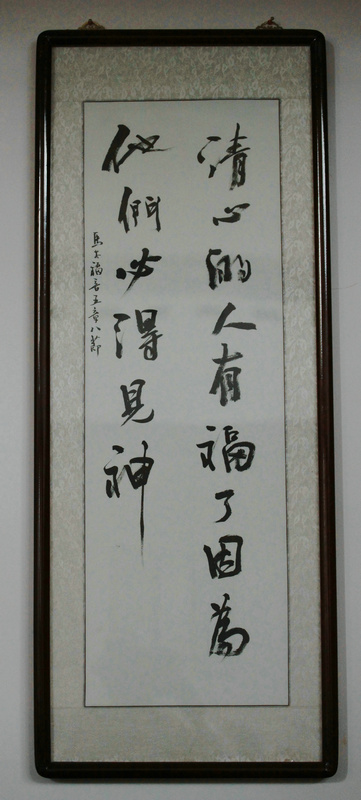 清心的人有福了因為
他們必得見神
馬太福音五章八節